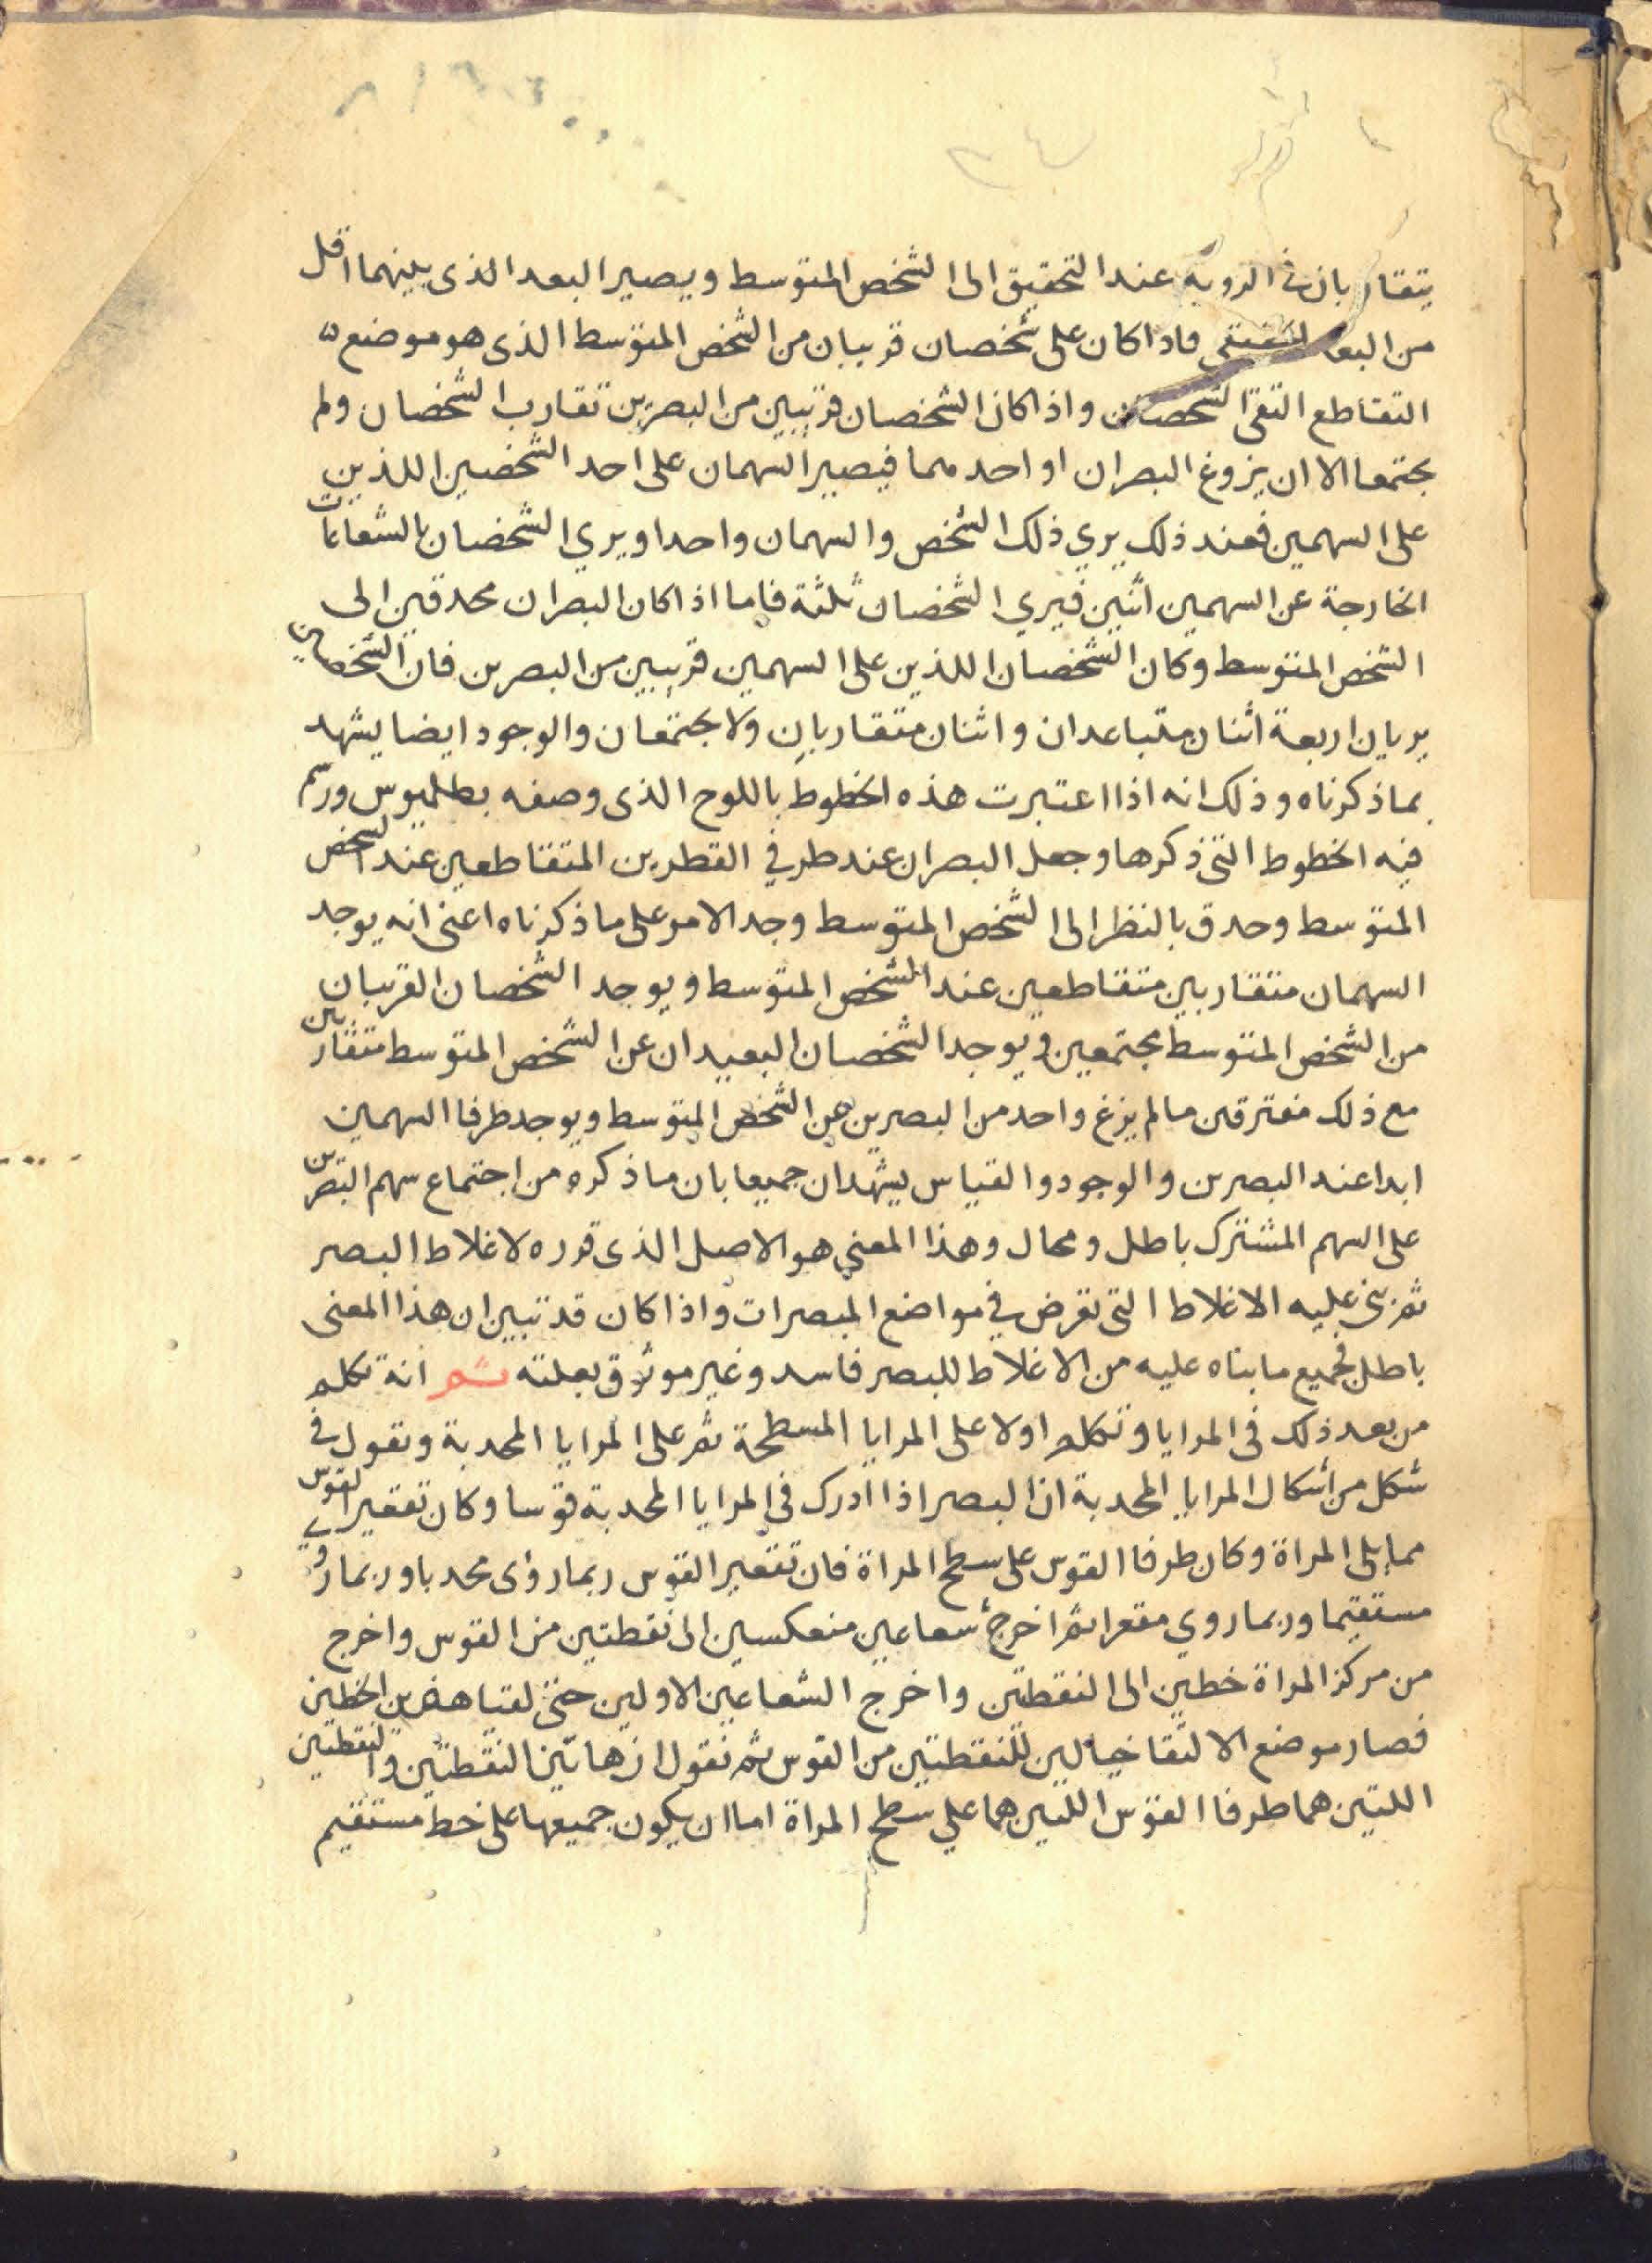 يتقاربان في الروية عند التحقيق الى الشخص المتوسط ويصير البعد الذى بينهما اقل
من البعد الحقيقي فاذا كان على شخصان قريبان من الشخص المتوسط الذى هو موضع
التقاطع التقى الشخصان واذا كان الشخصان قريبين من البصرين تقارب الشخصان ولم
يجتمعا الا ان يزوغ البصران او احدهما فيصير السهمان على احد الشخصين اللذين
على السهمين فعند ذلك يري ذلك الشخص والسهمان واحدا ويري الشخصان بالشعاعات
الخارجة عن السهمين اثنين فيري الشخصان ثلثة فاما اذا كان البصران محدقين الى
الشخص المتوسط وكان الشخصان اللذين على السهمين قريبين من البصرين فان الشخصين
يريان اربعة اثنان متباعدان واثنان متقاربان ولا يجتمعان والوجود ايضا يشهد
بما ذكرناه وذلك انه اذا اعتبرت هذه الخطوط باللوح الذى وصفه بطلميوس ورسم
فيه الخطوط التى ذكرها وجعل البصران عند طرفي القطرين المتقاطعين عند الشخص
المتوسط وحدق بالنظر الى الشخص المتوسط وجد الامر على ما ذكرناه اعنى انه يوجد
السهمان متقاربين متقاطعين عند الشخص المتوسط ويوجد الشخصان القريبان
من الشخص المتوسط مجتمعين ويوجد الشخصان البعيدان عن الشخص المتوسط متقاربين
مع ذلك مفترقين ما لم يزغ واحد من البصرين عن الشخص المتوسط ويوجد طرفا السهمين
ابدا عند البصرين والوجود والقياس يشهدان جميعا بان ما ذكره من اجتماع سهم البصرين
على السهم المشترك باطل ومحال وهذا المعنى هو الاصل الذى قرره لاغلاط البصر
ثم بنى عليه الاغلاط التى تعرض في مواضع المبصرات واذا كان قد تبين ان هذا المعنى
باطل فجميع ما بناه عليه من الاغلاط للبصر فاسد وغير موثوق بعلته ثم انه تكلم
من بعد ذلك فى المرايا وتكلم اولا على المرايا المسطحة ثم على المرايا المحدبة وتقول فى
شكل من اشكال المرايا المحدبة ان البصر اذا ادرك فى المرايا المحدبة قوسا وكان تقعير القوس
مما يلى المراة وكان طرفا القوس على سطح المراة فان تقعير القوس ربما رؤى محدبا وربما رؤي
مستقيما وربما روي مقعرا ثم اخرج شعاعين منعكسين الى نقطتين من القوس واخرج
من مركز المراة خطين الى النقطتين واخرج الشعاعين الاولين حتى لقيا هذين الخطين
فصار موضع الالتقا خيالين للنقطتين من القوس ثم نقول ان هاتين النقطتين والنقطتين
اللتين هما طرفا القوس اللتين هما علي سطح المراة اما ان يكون جميعها على خط مستقيم